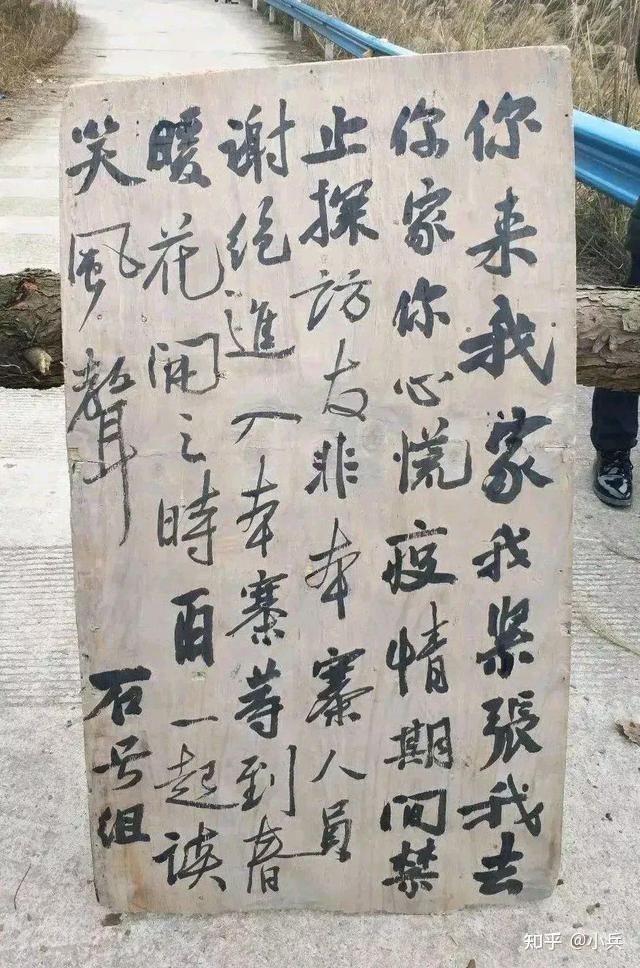 你来我家我紧張我去
你家你心慌疫情期间禁
止探访友非本寨人员
谢绝進入本寨等到春
暖花開之時再一起谈
笑風聲
石号组
知乎 @小兵